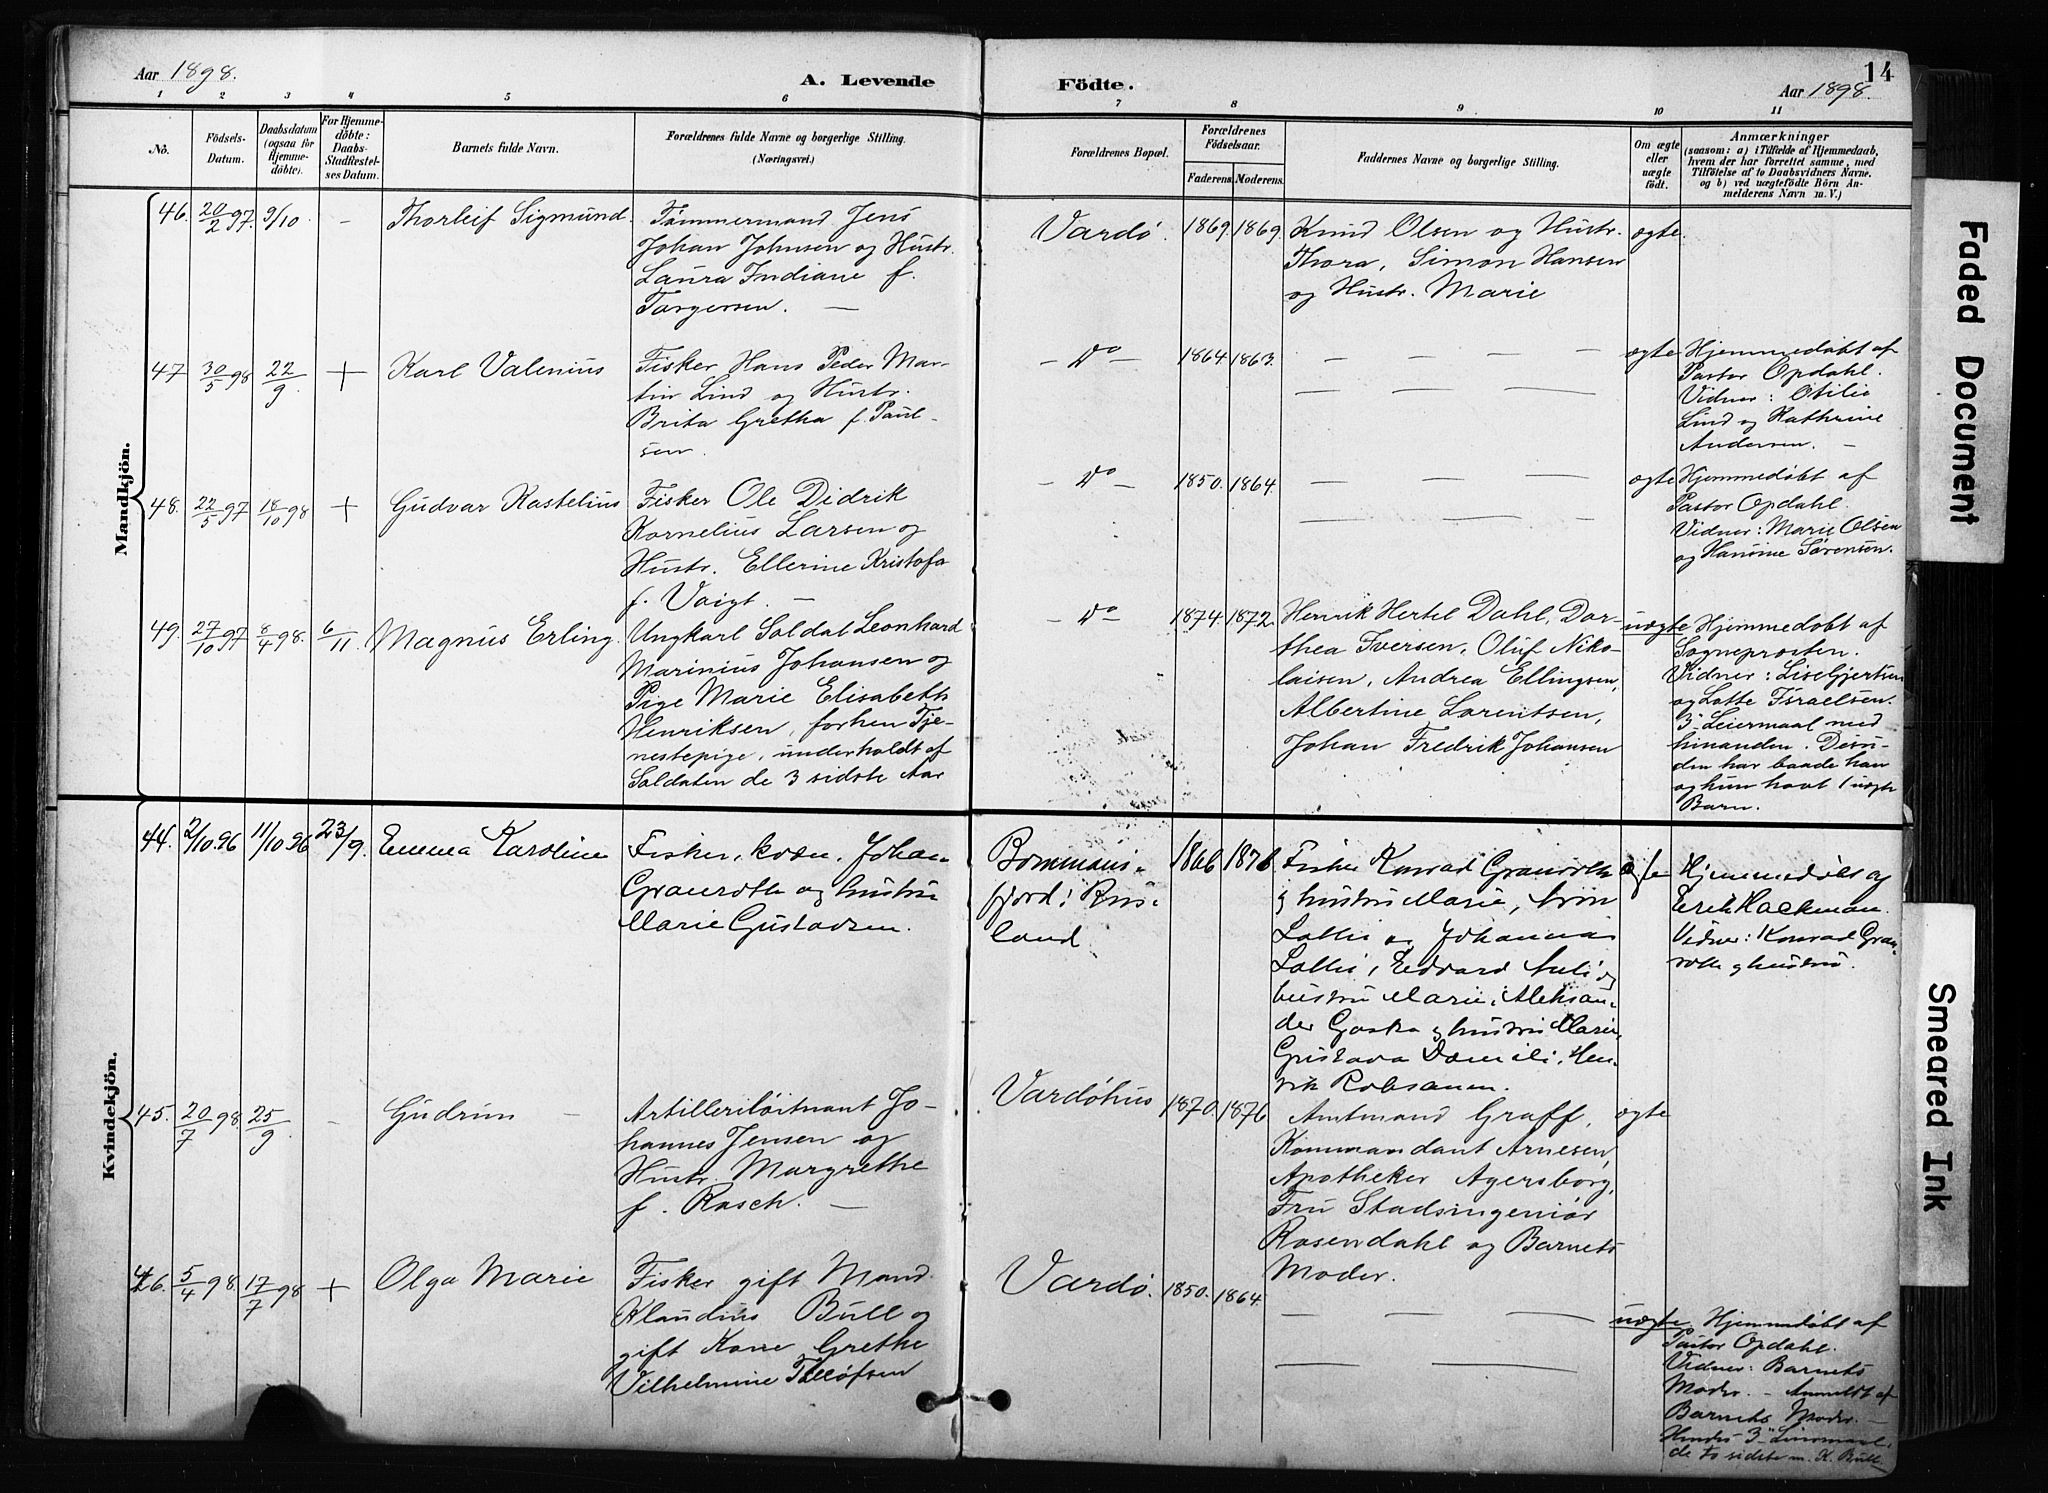 Aar 1898.
A. Levende
Födte.
Aar 1898.
14
1 2 3 4 5 6 7 8 9 10 11
No.
Födsels-
Datum.
Daabsdatum
(ogsaa for
Hjemme-
døbte).
For Hjemme-
døbte:
Daabs-
Stadfæstel-
ses Datum.
Barnets fulde Navn.
Forældrenes fulde Navne og borgerlige Stilling.
(Næringsvei.)
Forældrenes Bopæl.
Forældrenes
Födselsaar.
Faderens. Moderens.
Faddernes Navne og borgerlige Stilling.
Om ægte
eller
uægte
födt.
Anmærkninger
(saasom: a) i Tilfælde af Hjemmedaab,
hvem der har forrettet samme, med
Tilföielse af to Daabsvidners Navne.
og b) ved uægtefödte Börn An-
melderens Navn m. V.)
Mandkjön.
46. 20/2 97. 9/10 – Thorleif Sigmund.
Tømmermand Jens
Johan Johnsen og Hustr.
Laura Indiane f.
Torgersen. —
Vardö. 1869. 1869.
Knud Olsen og Hustr.
Thora, Simon Hansen
og Hustr. Marie
ægte.
47 30/5 98 22/9 + Karl Valenius
Fisker Hans Peder Mar-
tin Lind og Hustr.
Brita Gretha f. Paul-
sen.
– Do – 1864 1863. — — — —
— — — —
ægte
Hjemmedøbt af
Pastor Opdahl.
Vidner: Otilie
Lind og Kathrine
Andersen. –
48. 22/5 97 18/10 98 + Gudvar Kastelius
Fisker Ole Didrik
Kornelius Larsen og
Hustr. Ellerine Kristofa
f. Voigt. —
– Do – 1850. 1864. — — — —
— — — —
ægte
Hjemmedøbt af
Pastor Opdahl.
Vidner: Marie Olsen
og Hansine Sørensen.
49. 27/10 97 8/4 98. 6/11. Magnus Erling.
Ungkarl Soldat Leonhard
Marinius Johansen og
Pige Marie Elisabeth
Henriksen, forhen Tje-
nestepige, underholdt af
Soldaten de 3 sidste Aar
– Do – 1874. 1872.
Henrik Hertel Dahl, Dor-
thea Iversen, Oluf Niko-
laisen, Andrea Ellingsen,
Albertine Lorentsen,
Johan Fredrik Johansen
uægte
Hjemmedøbt af
Sognepresten.
Vidner: Lise Gjertsen
og Lotte Israelsen.
3. Leiermaal med
hinanden. Desu-
den har baade han
og hun havt 1 uægte
Barn.
Kvindekjön.
44. 2/10.96 11/10.96 23/9. Emma Karoline
Fisker, kvæn, Johan
Granroth og hustru
Marie Gustavsen.
Bommans-
fjord i Rus-
land
1866 1876
Fisker Konrad Granroth
og hustru Marie,
Lotti og Johannes
Lotti, Edvard
hustru Marie, Aleksan-
der Goska og hustru Marie,
Gustava Hen-
rik
ægte
Hjemmedøbt og
Erik Hackman.
Vidner: Konrad Gran-
roth og hustru.
45. 20/7 98. 25/9. – Gudrun –
Artilleriløitnant Jo-
hannes Jensen og
Hustr. Margrethe
f. Rasch. —
Vardøhus 1870. 1876
Amtmand Graff,
Kommandant Arnesen,
Apotheker Agersborg,
Fru Stadsingeniør
Rosendahl og Barnets
Moder.
ægte
46. 5/4 98. 17/7 98 + Olga Marie
Fisker gift Mand
Klaudius Bull og
gift Kone Grethe
Vilhelmine Tollofsen
Vardö. 1850. 1864. — — —
— —
uægte.
Hjemmedøbt af
Pastor Opdahl.
Vidner: Barnets
Moder. – Anmeldt af
Barnets Moder. –
Hendes 3. Leiermaal,
de to sidste m. K. Bull.
Faded Document
Smeared Ink